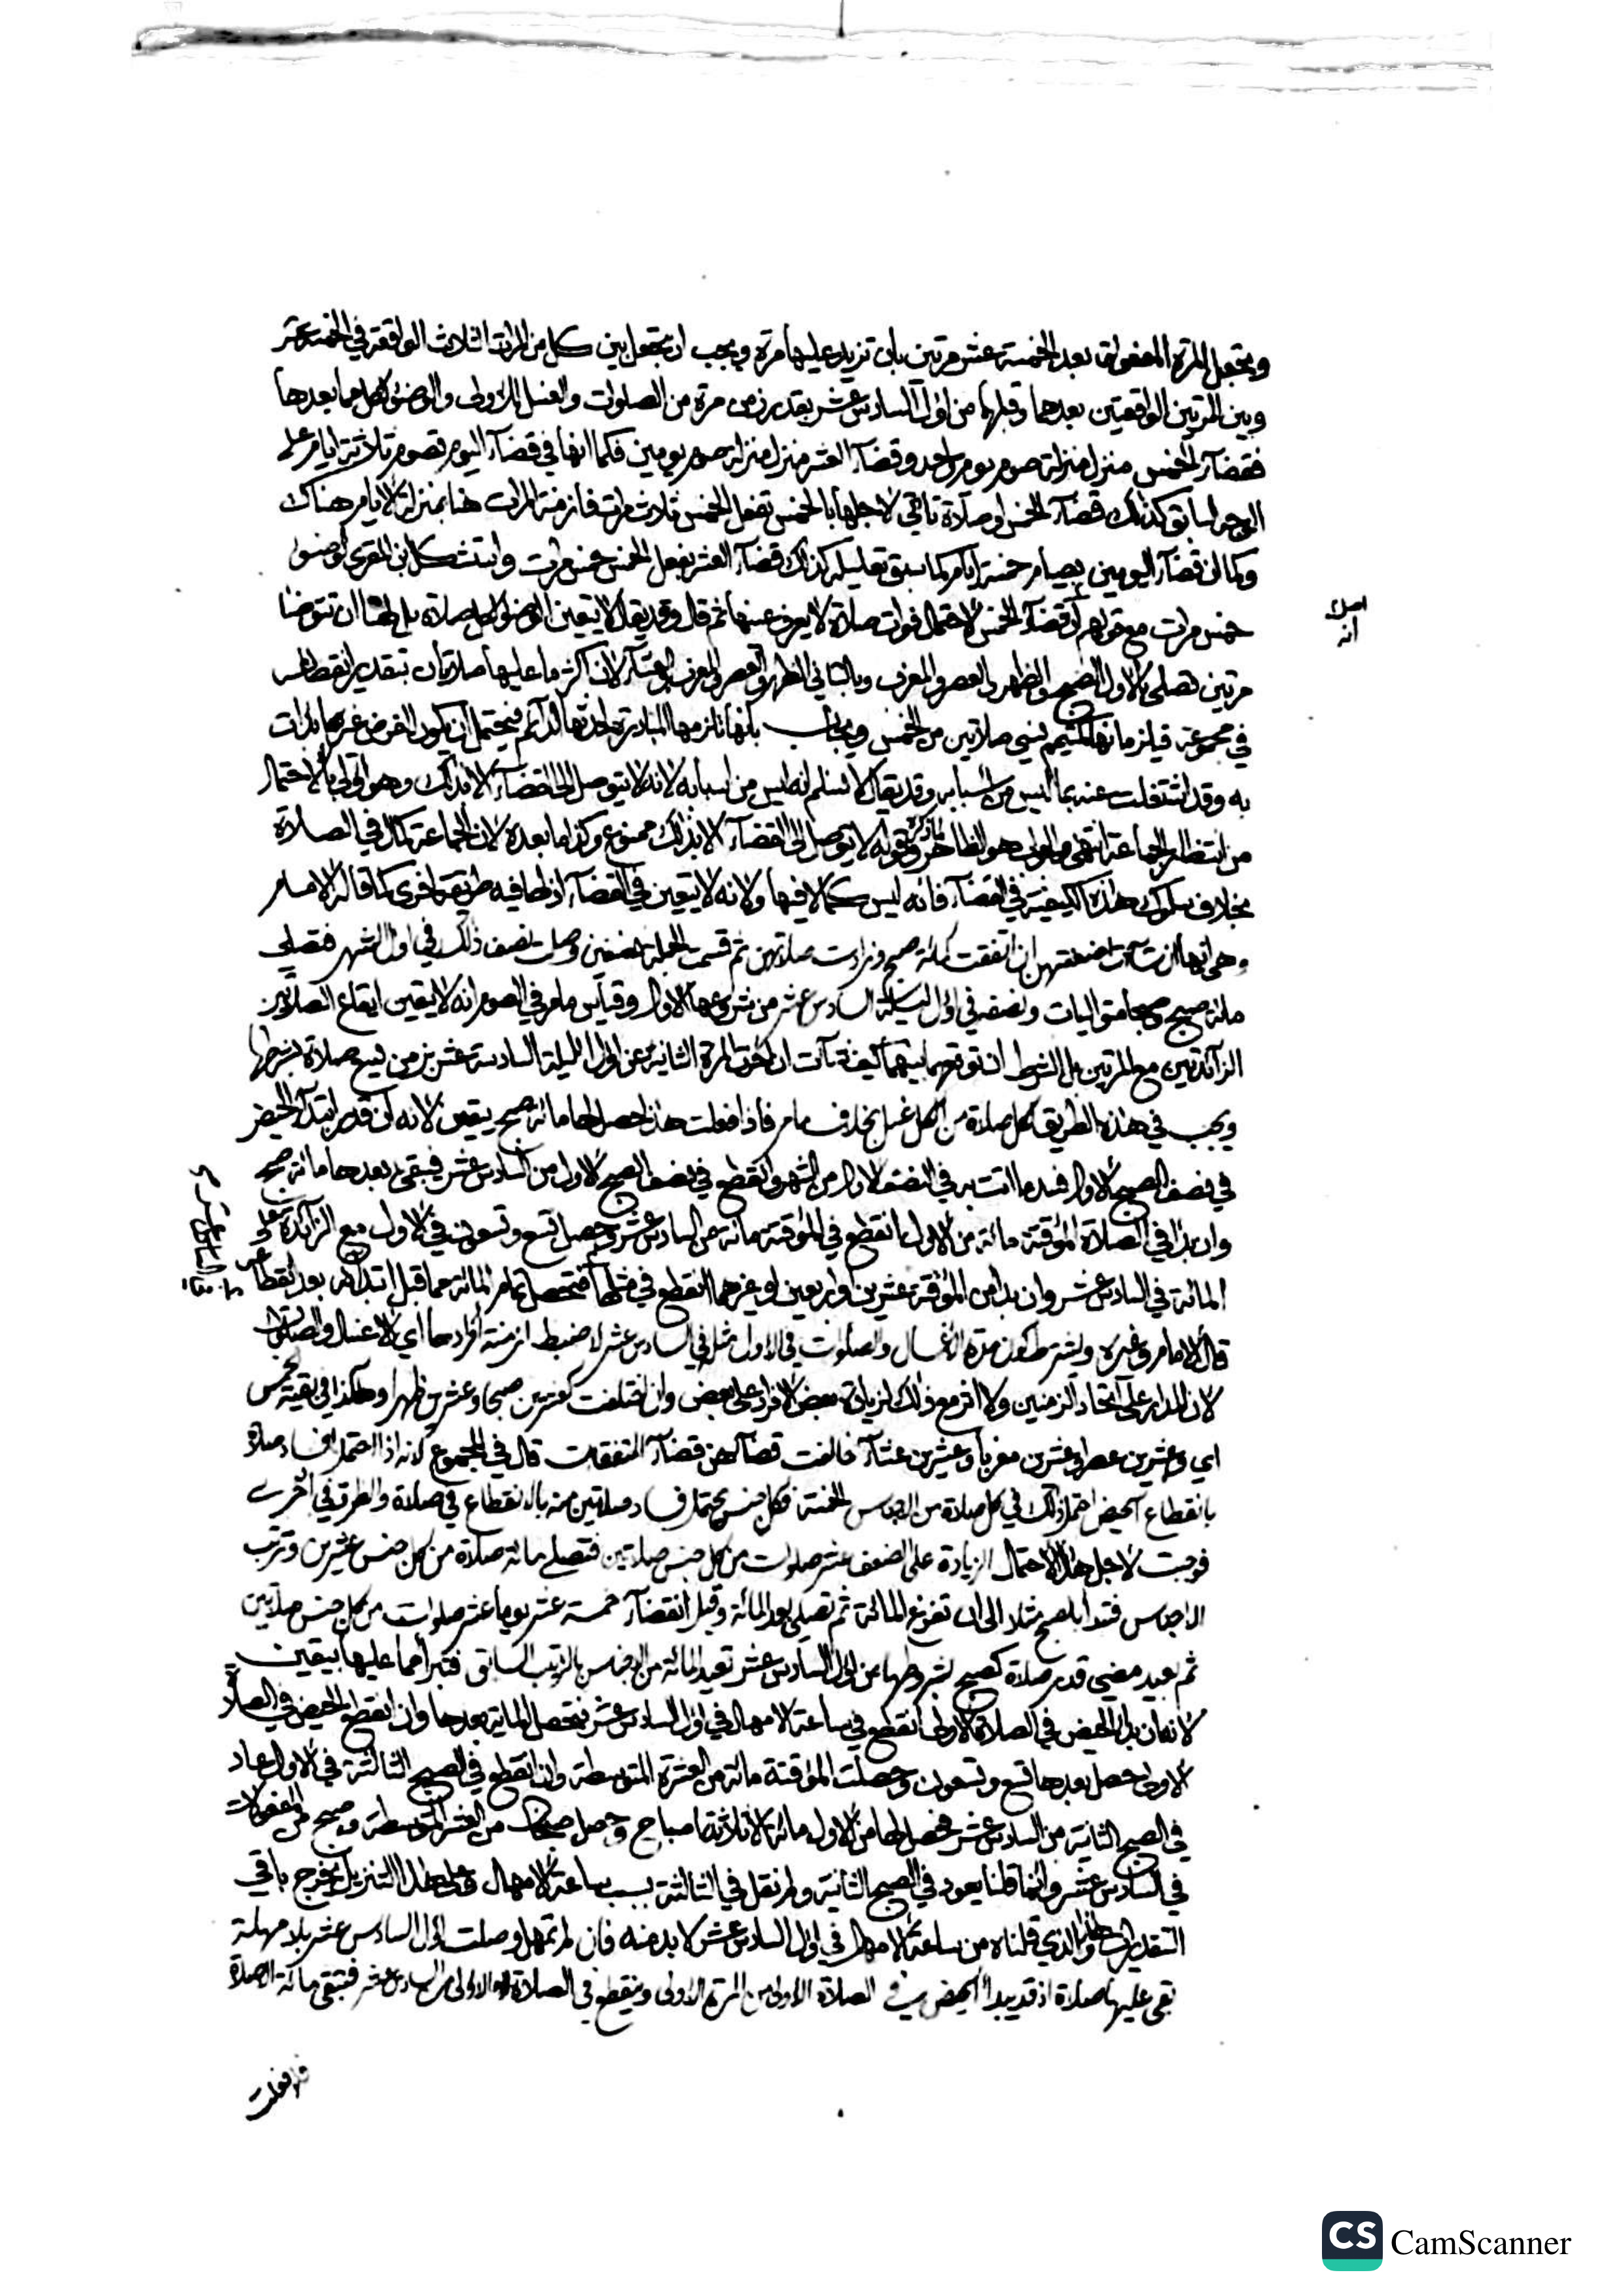 وتجعل المرة المفعولة بعد الخمسة عشر مرتين بان تزيد عليها مرة ويجب ان تجعل بين كل من المرات الثلاث الواقعة في الخمسة عشر
وبين المرتين الواقعتين بعدها وقبلها من اول السادس عشر بقدر زمن مرة من الصلوات والغسل للاولى والوضوء لكل مما بعدها
فقضاء الخمس منزل منزلة صوم يوم واحد وقضاء العشر منزل منزلة صوم يومين فكما انها في قضاء اليوم تصوم ثلاثة ايام على
الوجه السابق كذلك قضاء الخمس او صلاة تاتي لاجلها بالخمس تفعل الخمس ثلاث مرات فازمنة المرات هنا بمنزلة الايام هناك
وكما ان قضاء اليومين بصيام خمسة ايام كما سبق تعليله كذلك قضاء العشر بفعل الخمس خمس مرات واستشكل ابن المقري الوضوء
خمس مرات مع قولهم ان قضاء الخمس لاحتمال فوات صلاة لا يعرف عينها ثم قال وقد يقال لا يتعين الوضوء لكل صلاة بل لها ان تتوضا
مرتين تصلي بالاول الصبح والظهر والعصر والمغرب وبالثاني الظهر والعصر والمغرب والعشاء لان اكثر ما عليها صلاتان بتقدير انقطاعه
في مجموعة فيلزمانها كمتيمم نسي صلاتين من الخمس ويجاب بانها تلزمها المبادرة وحدثها دائم فيحتمل ان يكون الفرض غير ما بدات
به وقد اشتغلت عنه بما ليس من اسبابه وقد يقال لا نسلم انه ليس من اسبابه لانه لا يتوصل الى القضاء الا بذلك وهو اولى بالاحتمال
من انتظار الجماعة انتهى والجواب هو الظاهر وقوله لا يتوصل الى القضاء الا بذلك ممنوع وكذا ما بعده لان الجماعة كمال في الصلاة
بخلاف سلوك هذه الكيفية في القضاء فانه ليس كمالا فيها ولانه لا يتعين في القضاء اذ لها فيه طريقة اخرى كما قاله الامام
وهي انها ان شات اضعفتهن ان اتفقت كمائة صبح وزادت صلاتين ثم قسمت الجملة نصفين وصلت نصف ذلك في اول الشهر فتصلي
مائة صبح وصبحا متواليات ونصفه في اول ليلة السادس عشر من شروعها الاول وقياس ما مر في الصوم انه لا يتعين ايقاع الصلاتين
الزائدتين مع المرتين بل الشرط ان توقعهما بينهما كيف شات ان اخرت المرة الثانية عن اول الليلة السادسة عشر بزمن يسع صلاة بشرطها
ويجب في هذه الطريق لكل صلاة من الكل غسل بخلاف ما مر فاذا فعلت هذا حصل لها مائة صبح بيقين لانه ان قدر ابتداء الحيض
في نصف الصبح الاول فسد ما اتت به في النصف الاول من الشهر وانقطع في نصف الصبح الاول من السادس عشر فيبقى بعدها مائة صبح
وان بدا في الصلاة الموفية مائة من الاول انقطع في الموفية مائة من السادس عشر وحصل تسع وتسعون في الاول مع الزائدة على
المائة في السادس عشر وان بدا من الموفية عشرين او اربعين او غيرهما انقطع في مثلها فتحصل تمام المائة مما قبل ابتدائه وبعد انقطاعه
قال الامام وغيره ويشترط كون مدة الاغسال والصلوات في الاول مثلها في السادس عشر لا ضبط ازمنة افرادها اي الاغسال والصلوات
لان المدار على اتحاد الزمنين ولا اثر مع ذلك لزيادة بعض الافراد على بعض وان اختلفت كعشرين صبحا وعشرين ظهرا وهكذا في بقية الخمس
اي وعشرين عصرا وعشرين مغربا وعشرين عشاء خالفت قضاؤهن قضاء المتفقات قال في المجموع لانه اذا احتمل افساد صلاة
بانقطاع الحيض احتمل ذلك في كل صلاة من الاجناس الخمسة فكل جنس يحتمل فساد صلاتين منه بالانقطاع في صلاة والطروّ في اخرى
فوجبت لاجل هذا الاحتمال الزيادة على الضعف عشر صلوات من كل جنس صلاتين فتصلي مائة صلاة من كل جنس عشرين وترتب
الاجناس فتبدا بالصبح مثلا الى ان تفرغ المائة ثم تصلي بعد المائة وقبل انقضاء خمسة عشر يوما عشر صلوات من كل جنس صلاتين
ثم بعيد مضي قدر صلاة كصبح بشروطها من اول السادس عشر تعيد المائة من الاجناس بالترتيب السابق فتبرا مما عليها بيقين
لانه ان بدا الحيض في الصلاة الاولى انقطع في ساعة الامهال في اول السادس عشر فتحصل المائة بعدها وان انقطع الحيض في الصلاة
الاولى حصل بعدها تسع وتسعون وحصلت الموفية مائة من العشرة المتوسطة وان انقطع في الصبح الثالثة في الاول عاد
في الصبح الثانية من السادس عشر فحصل لها من الاول مائة الا ثلاثة اصباح وحصل صبحان من العشر المتوسطة وصبح من المفعولات
في السادس عشر وانما قلنا يعود في الصبح الثانية ولم نقل في الثالثة بسبب ساعة الامهال وعلى هذا التنزيل يخرج باقي
التقديرات وهذا الذي قلناه من ساعة الامهال في اول السادس عشر لا بد منه فان لم تمهل وصلت اول السادس عشر بلا مهلة
بقي عليها صلاة اذ قد يبدا الحيض في الصلاة الاولى من المرة الاولى وينقطع في الصلاة الاولى من السادس عشر فتبقى مائة الا صلاة